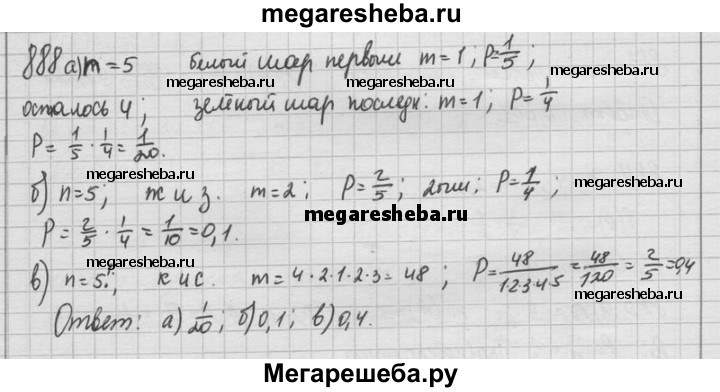 megaresheba.ru
888 а) n = 5 белый шар первым m = 1; P = 1/5;
megaresheba.ru megaresheba.ru
осталось 4; зелёный шар последн: m = 1; P = 1/4
P = 1/5 · 1/4 = 1/20.
megaresheba.ru megaresheba.ru
б) n = 5; ж и з. m = 2; P = 2/5; 2оши; P = 1/4;
megaresheba.ru
megaresheba.ru
P = 2/5 · 1/4 = 1/10 = 0,1.
megaresheba.ru
в) n = 5; к и с. m = 4·2·1·2·3 = 48; P = 48/1·2·3·4·5 = 48/120 = 2/5 = 0,4
megaresheba.ru megaresheba.ru
Ответ: а) 1/20; б) 0,1; в) 0,4.
Мегарешеба.ру